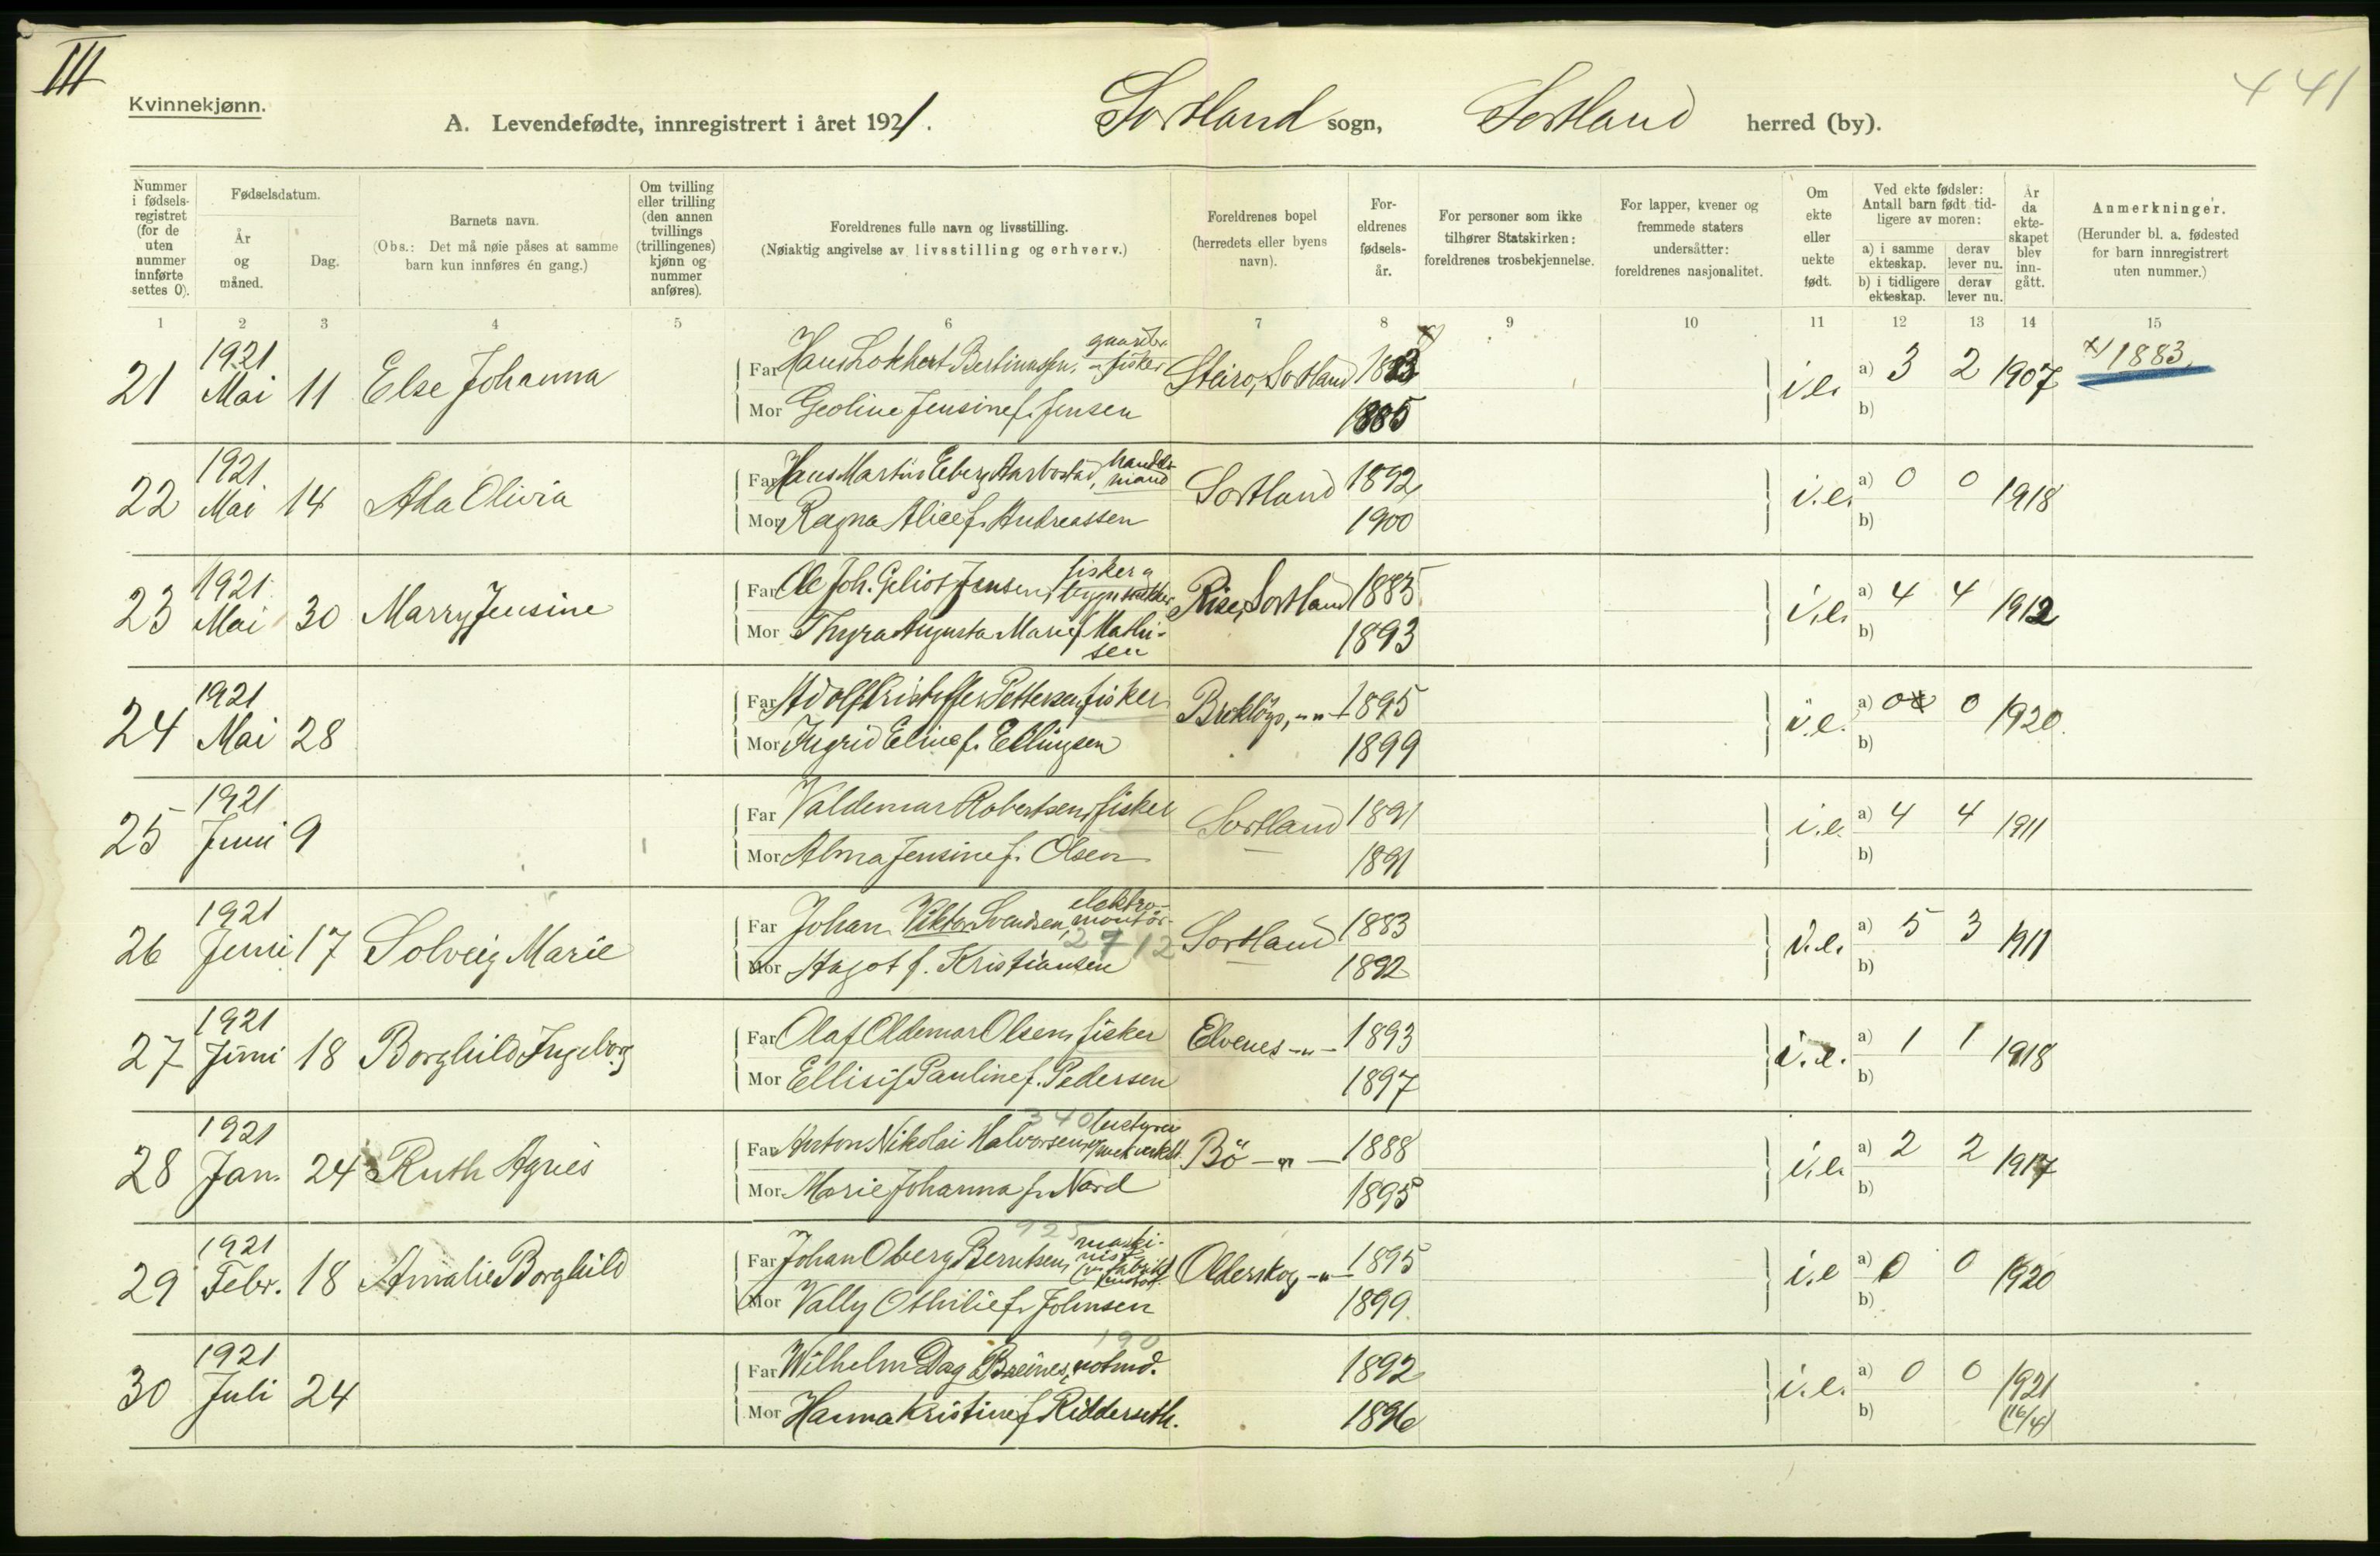 III
441
Kvinnekjønn.
A. Levendefødte, innregistrert i året 1921. Sortland sogn, Sortland herred (by).
Nummer i fødsels-registret (for de uten nummer innførte settes 0).
Fødselsdatum.
År og måned.
Dag.
Barnets navn.
(Obs.: Det må nøie påses at samme barn kun innføres én gang.)
Om tvilling eller trilling (den annen tvillings (trillingenes) kjønn og nummer anføres).
Foreldrenes fulle navn og livsstilling.
(Nøiaktig angivelse av livsstilling og erhverv.)
Foreldrenes bopel (herredets eller byens navn).
For-eldrenes fødsels-år.
For personer som ikke tilhører Statskirken: foreldrenes trosbekjennelse.
For lapper, kvener og fremmede staters undersåtter: foreldrenes nasjonalitet.
Om ekte eller uekte født.
Ved ekte fødsler: Antall barn født tid-ligere av moren:
a) i samme ekteskap.
derav lever nu.
b) i tidligere ekteskap.
derav lever nu.
År da ekte-skapet blev inn-gått.
Anmerkninger.
(Herunder bl. a. fødested for barn innregistrert uten nummer.)
1 2 3 4 5 6 7 8 9 10 11 12 13 14 15
21 1921 Mai 11 Else Johanna
Far Hans Lokkert Bertinussen, gaardbr. - fisker Steiro, Sortland 1883 x) i.e. a) 3 2 1907 x) 1883
Mor Geoline Jensine f. Jensen 1885 b)
22 1921 Mai 14 Ada Olivia
Far Hans Martin Eberg Aarbostad, handelsmand Sortland 1892 i.e. a) 0 0 1918
Mor Ragna Alice f. Andreassen 1900 b)
23 1921 Mai 30 Marry Jensine
Far Ole Joh. Geliot Jensen, fisker Rise, Sortland 1885 i.e. a) 4 4 1912
Mor Thyra Augusta Marie f. Mathisen 1893 b)
24 1921 Mai 28
Far Adolf Kristoffer Pettersen, fisker -"- 1895 i.e. a) 0 0 1920
Mor Ingrid Eline f. Ellingsen 1899 b)
25 1921 Juni 9
Far Valdemar Robertsen, fisker Sortland 1891 i.e. a) 4 4 1911
Mor Alma Jensine f. Olsen 1891 b)
26 1921 Juni 17 Solveig Marie
Far Johan Viktor Svendsen, elektro-montør Sortland 1883 i.e. a) 5 3 1911
2712
Mor Hagot f. Kristiansen 1892 b)
27 1921 Juni 18 Borghild Ingeborg
Far Olaf Oldemar Olsen, fisker Elvenes -"- 1893 i.e. a) 1 1 1918
Mor Ellisif Pauline f. Pedersen 1897 b)
28 1921 Jan. 24 Ruth Agnes
340
Far Anton Nikolai Halvorsen, bestyrer mek verkst. Bö -"- 1888 i.e. a) 2 2 1917
Mor Marie Johanna f. Nord 1895 b)
29 1921 Febr. 18 Amalie Borghild
925
Far Johan Oberg Berntsen, maskinist Olderskog -"- 1895 i.e a) 0 0 1920
Mor Vally Othilie f. Johnsen 1899 b)
30 1921 Juli 24
190
Far Wilhelm Dag Breines, 1892 i.e. a) 0 0 1921 (16/4)
Mor Hanna Kristine f. Ridderseth. 1896 b)